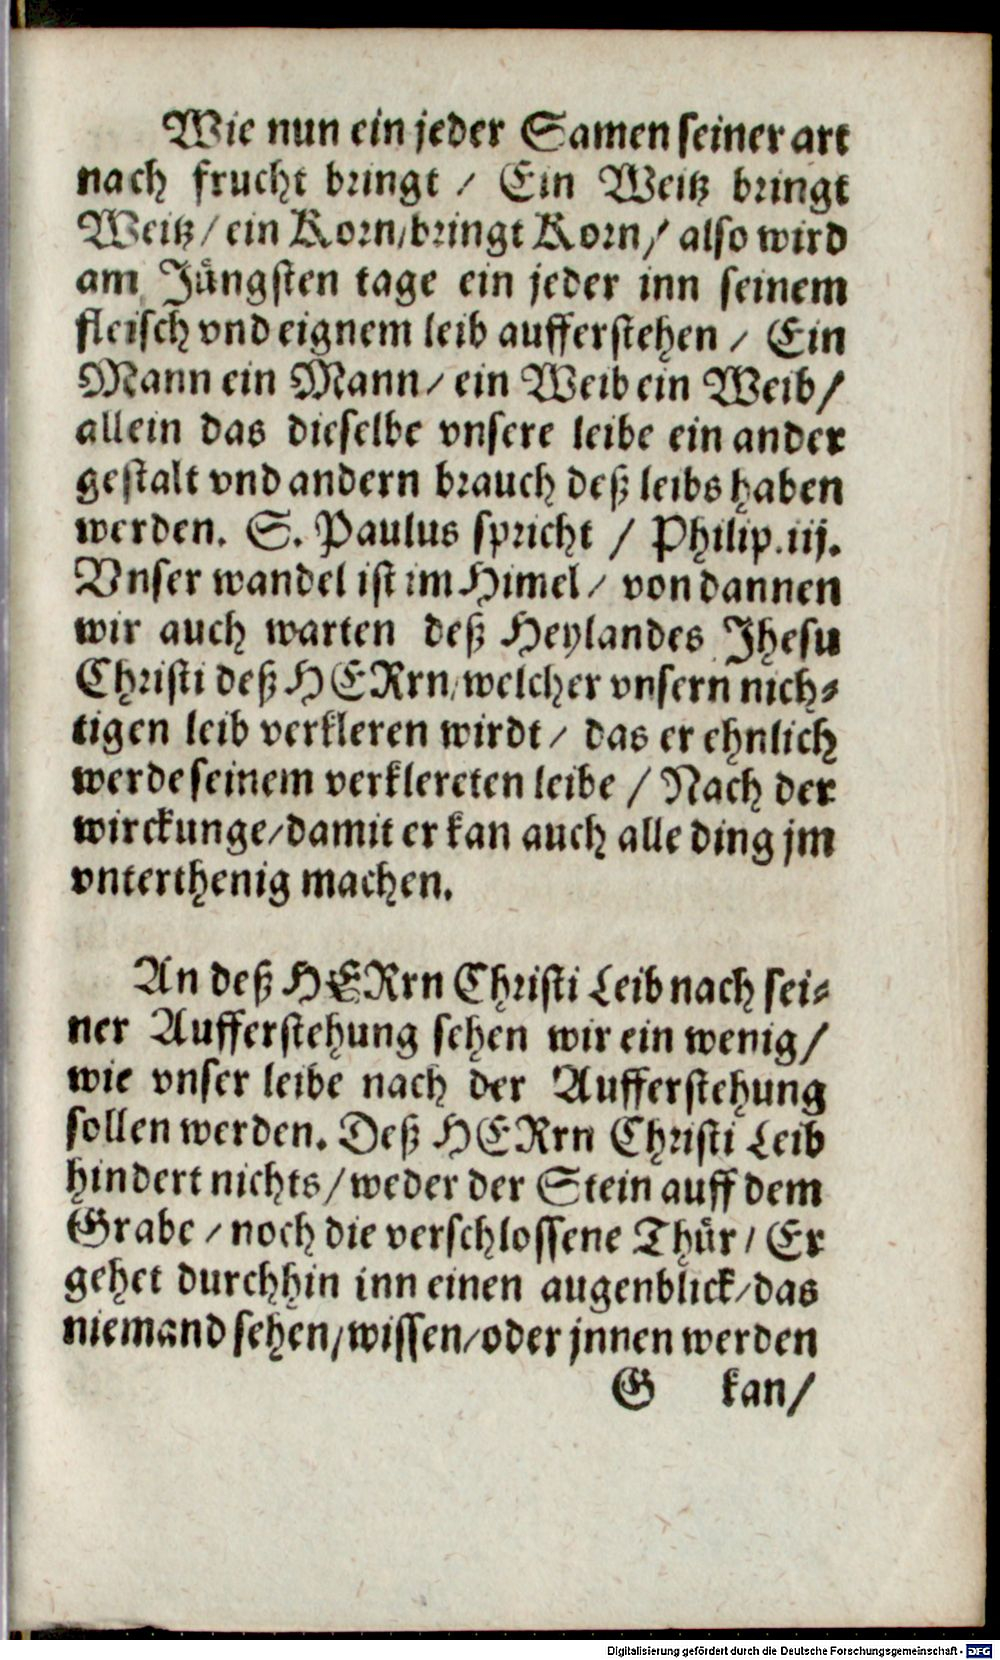 Wie nun ein jeder Samen seiner art
nach frucht bringt / Ein Weitz bringt
Weitz / ein Korn / bringt Korn / also wird
am Jüngsten tage ein jeder inn seinem
fleisch vnd eignem leib aufferstehen / Ein
Mann ein Mann / ein Weib ein Weib /
allein das dieselbe vnsere leibe ein ander
gestalt vnd andern brauch deß leibs haben
werden. S. Paulus spricht / Philip. iij.
Vnser wandel ist im Himel / von dannen
wir auch warten deß Heylandes Jhesu
Christi deß HERrn / welcher vnsern nich-
tigen leib verkleren wirdt / das er ehnlich
werde seinem verklereten leibe / Nach der
wirckunge / damit er kan auch alle ding jm
vnterthenig machen.
An deß HERrn Christi Leib nach sei-
ner Aufferstehung sehen wir ein wenig /
wie vnser leibe nach der Aufferstehung
sollen werden. Deß HERrn Christi Leib
hindert nichts / weder der Stein auff dem
Grabe / noch die verschlossene Thür / Er
gehet durchhin inn einen augenblick / das
niemand sehen / wissen / oder jnnen werden
G kan /
Digitalisierung gefördert durch die Deutsche Forschungsgemeinschaft - DFG